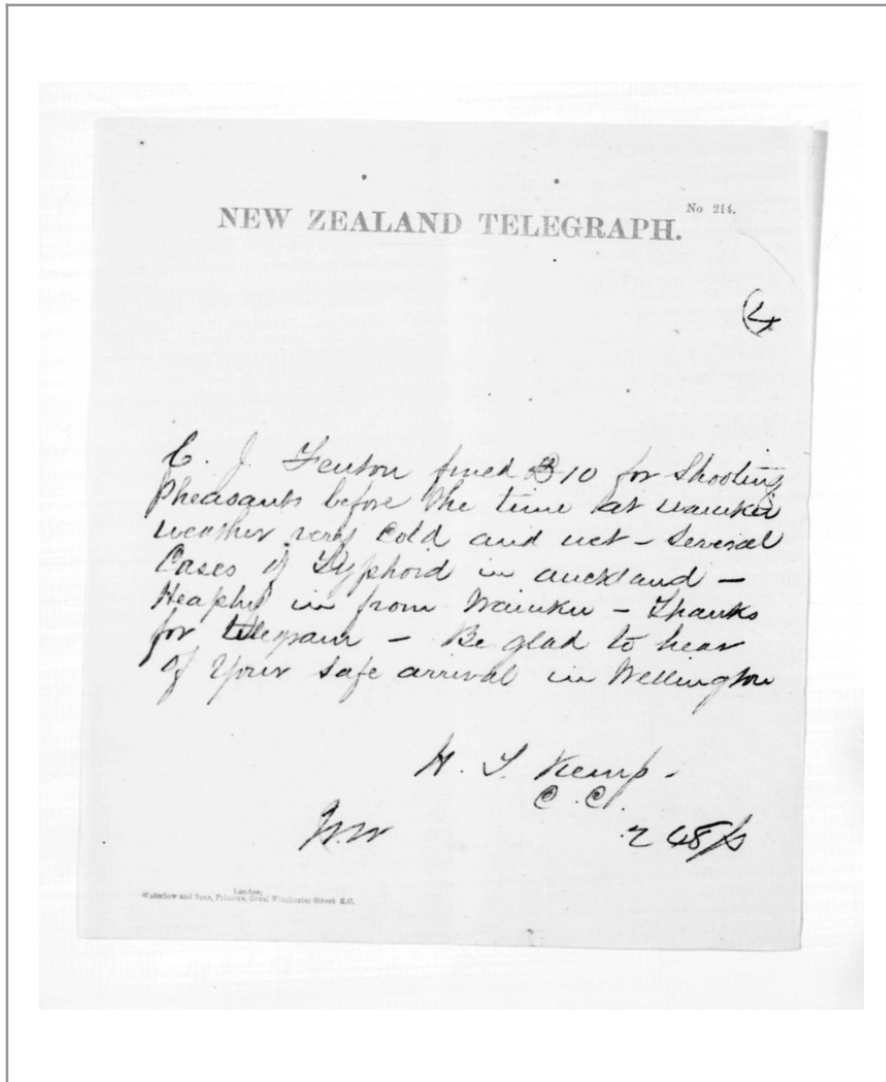 No 214.
NEW ZEALAND TELEGRAPH.
(4
C. J. Fenton fined £10 for Shooting
Pheasants before the time at waiuku
weather very Cold and wet - Several
Cases of Typhoid in auckland -
Heaphy in from Waiuku - Thanks
for telegram - Be glad to hear
of Your safe arrival in Wellington
H. T. Kemp -
C. C.
2 48/s
London;
Waterlow and Sons, Printers, Great Winchester Street E.C.